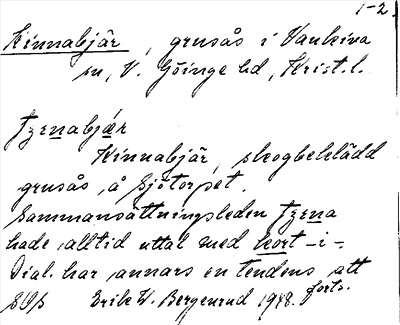 1-2.
Kinnabjär, grusås i Vankiva
sn, V. Göinge hd, Krist. l.
Kinnabjär, skogbeklädd
grusås å Sjötorpet.
Sammansättningsleden
hade alltid uttal med kort -i-
Dial. har annars en tendens att
forts.
SOS Erik W. Bergenrud 1918.